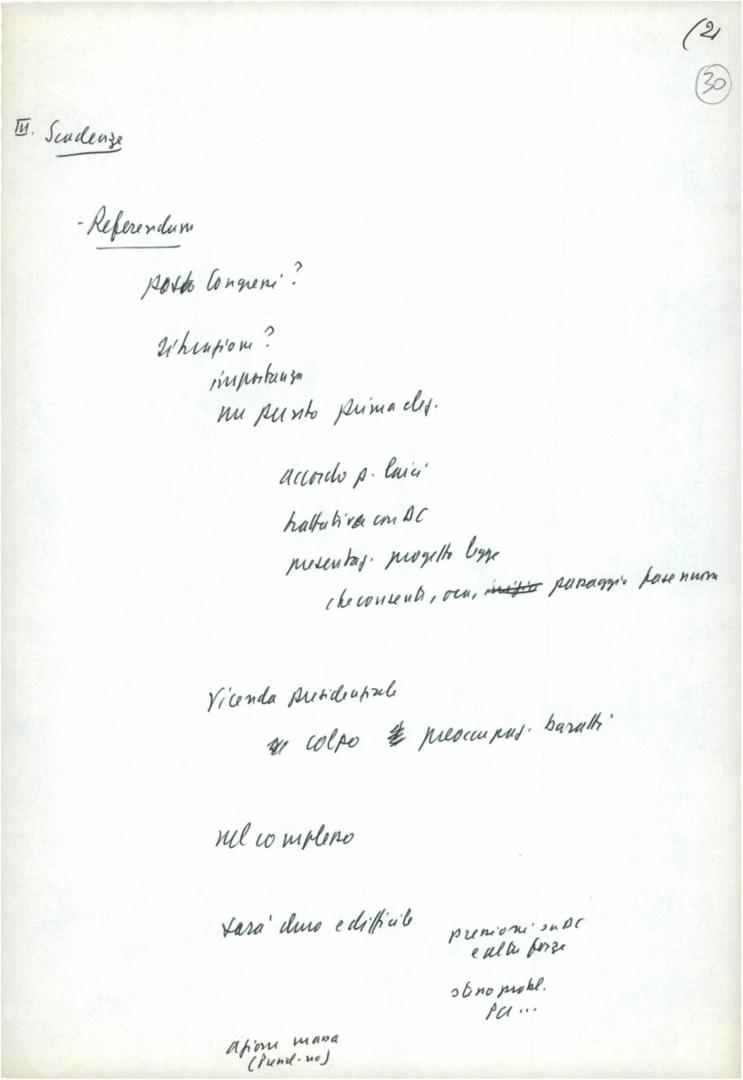 (2
30
III. Scadenze
- Referendum
posto Congressi?
situazione?
importanza
un punto prima elez.
accordo p. laici
trattativa con DC
presentaz. progetto legge
che consenti, ora, passaggio fase nuova
Vicenda presidenziale
colpo preoccupaz. baratti
nel complesso
sarà duro e difficile
pressioni su DC
e altre forze
probl.
PCI ...
azione massa